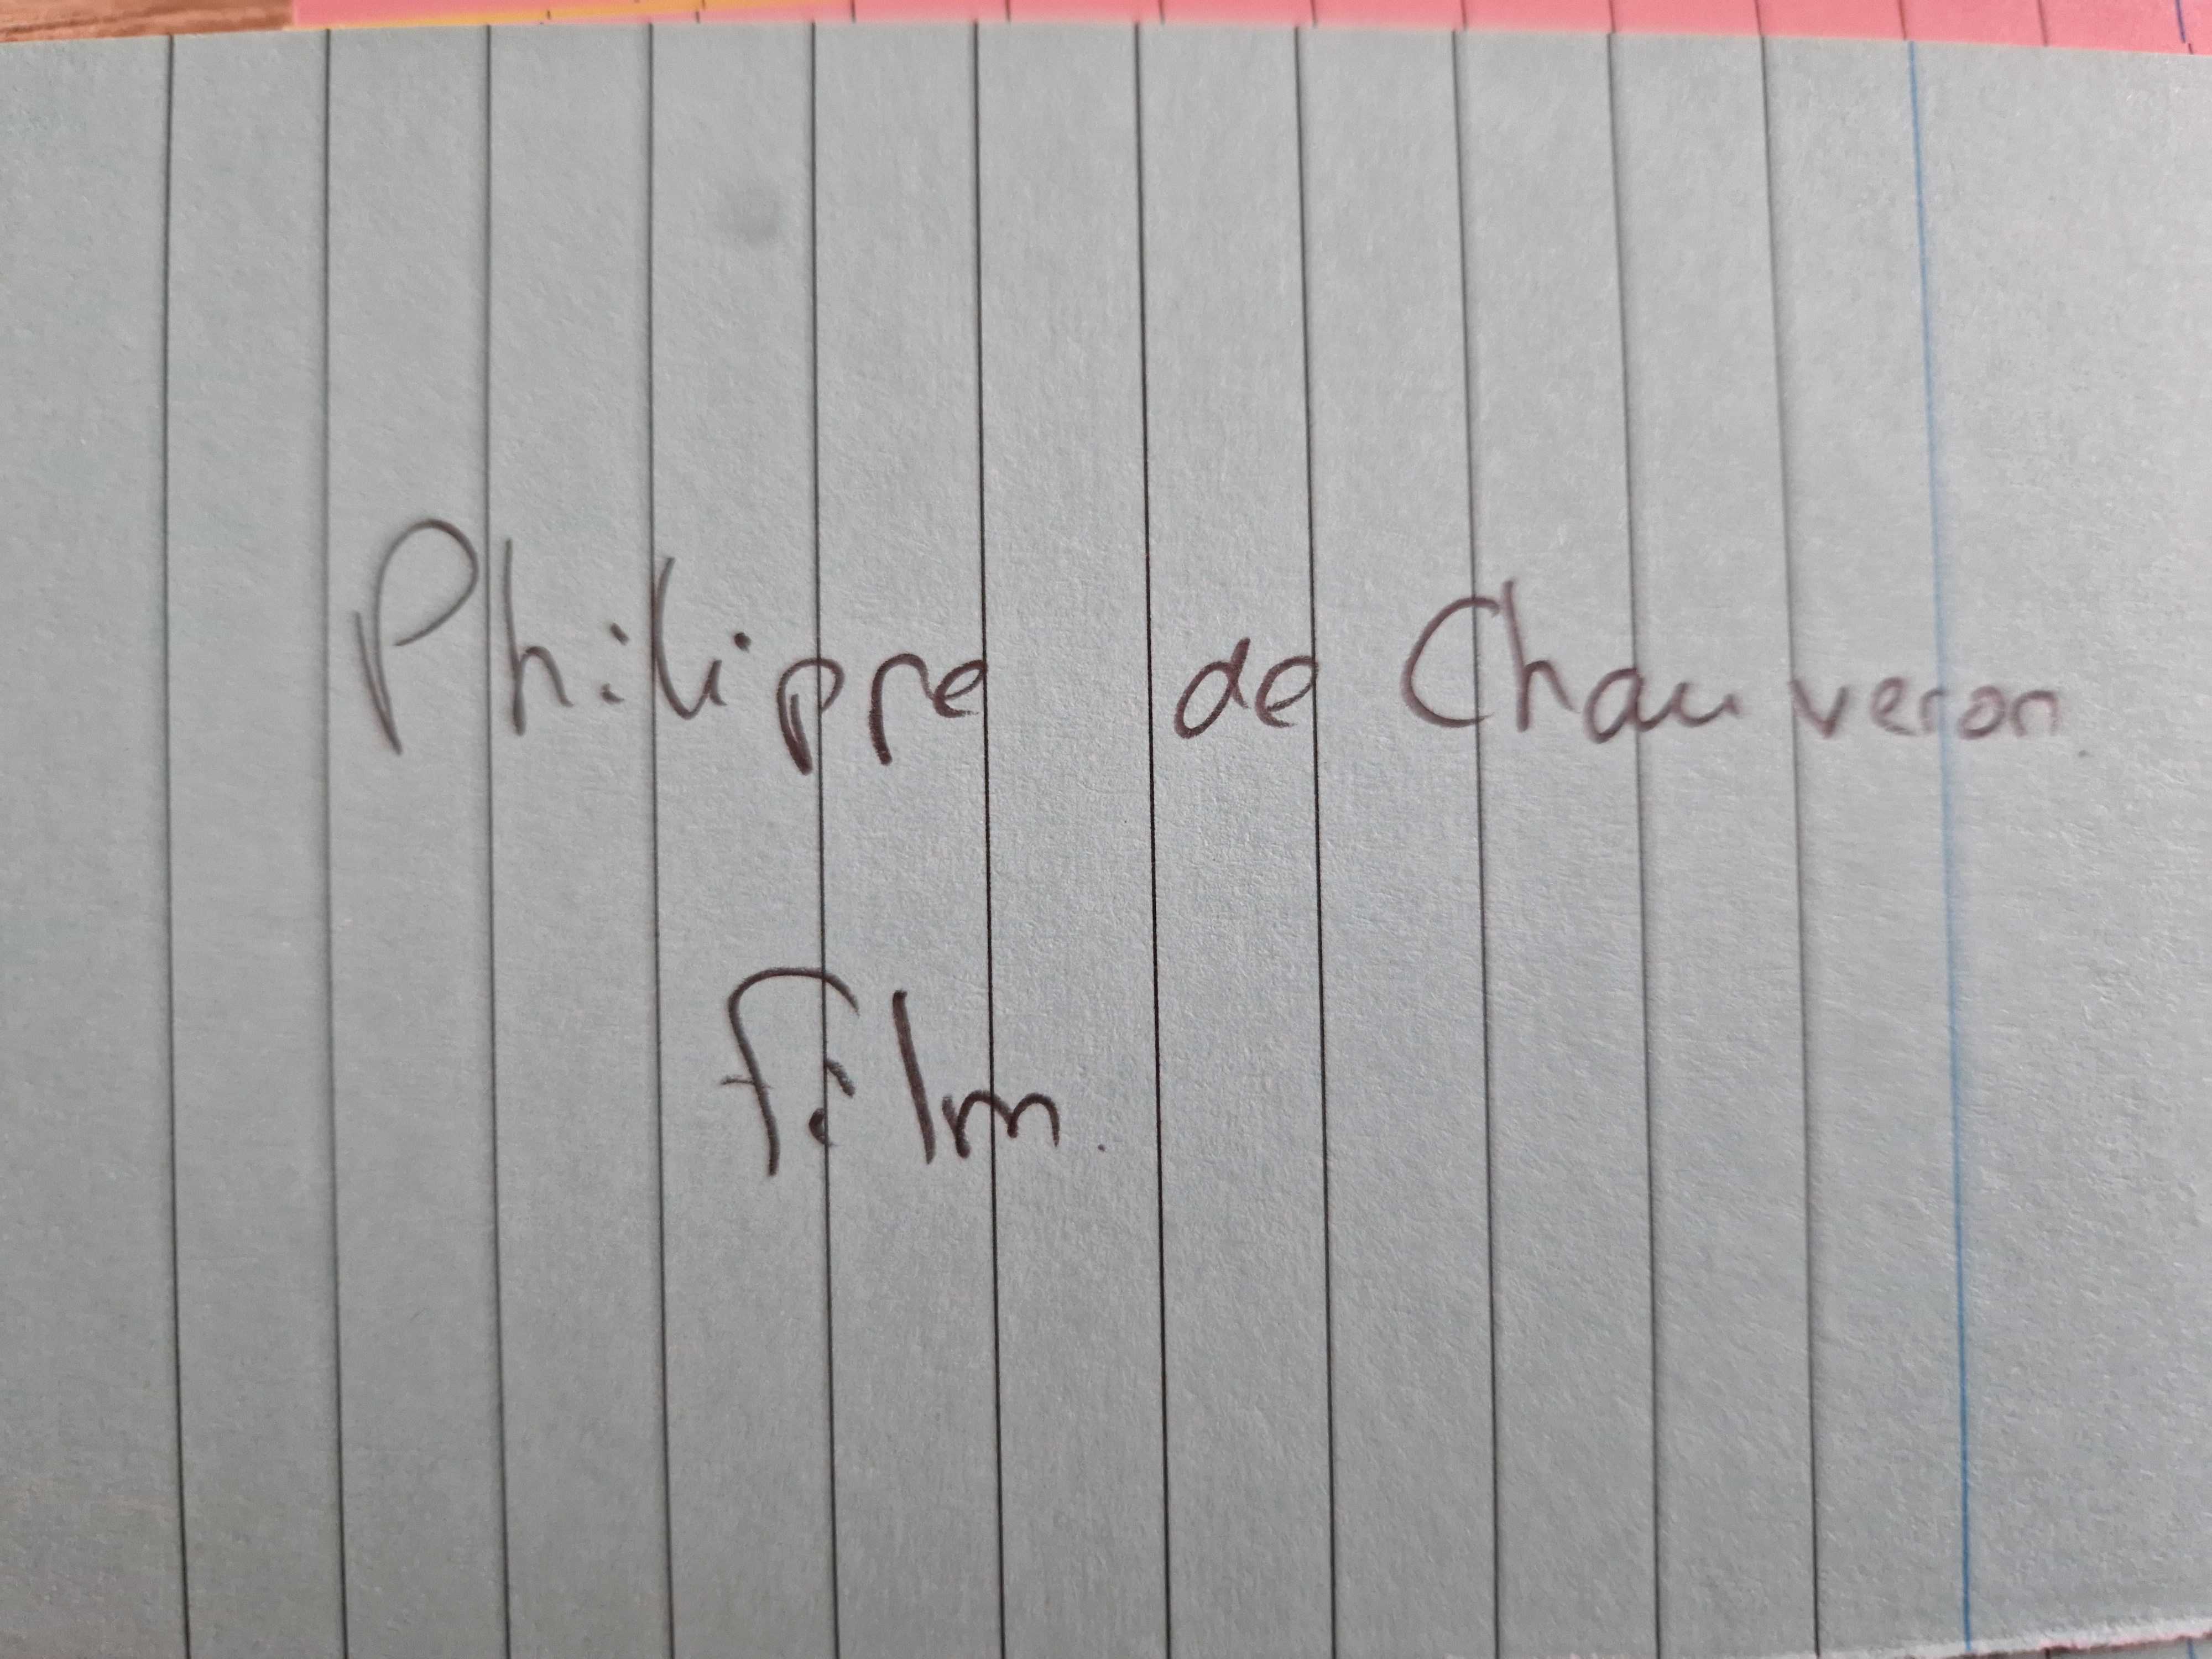 Philippe de Chauveron
film.